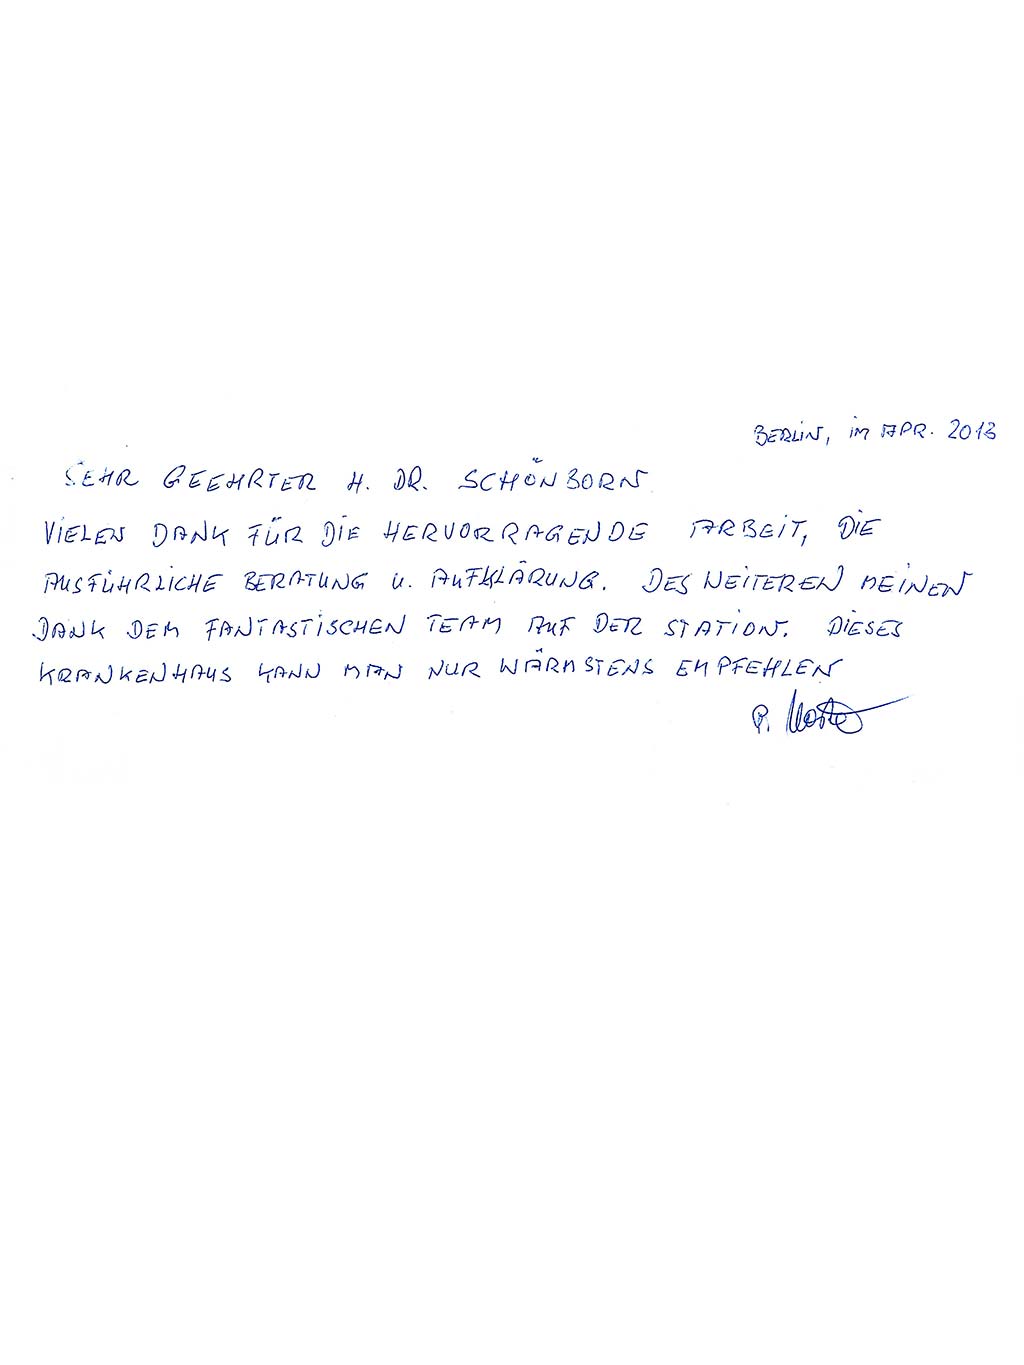 BERLIN, IM APR. 2013
SEHR GEEHRTER H. DR. SCHÖNBORN
VIELEN DANK FÜR DIE HERVORRAGENDE ARBEIT, DIE
AUSFÜHRLICHE BERATUNG U. AUFKLÄRUNG. DES WEITEREN MEINEN
DANK DEM FANTASTISCHEN TEAM AUF DER STATION. DIESES
KRANKENHAUS KANN MAN NUR WÄRMSTENS EMPFEHLEN
P.